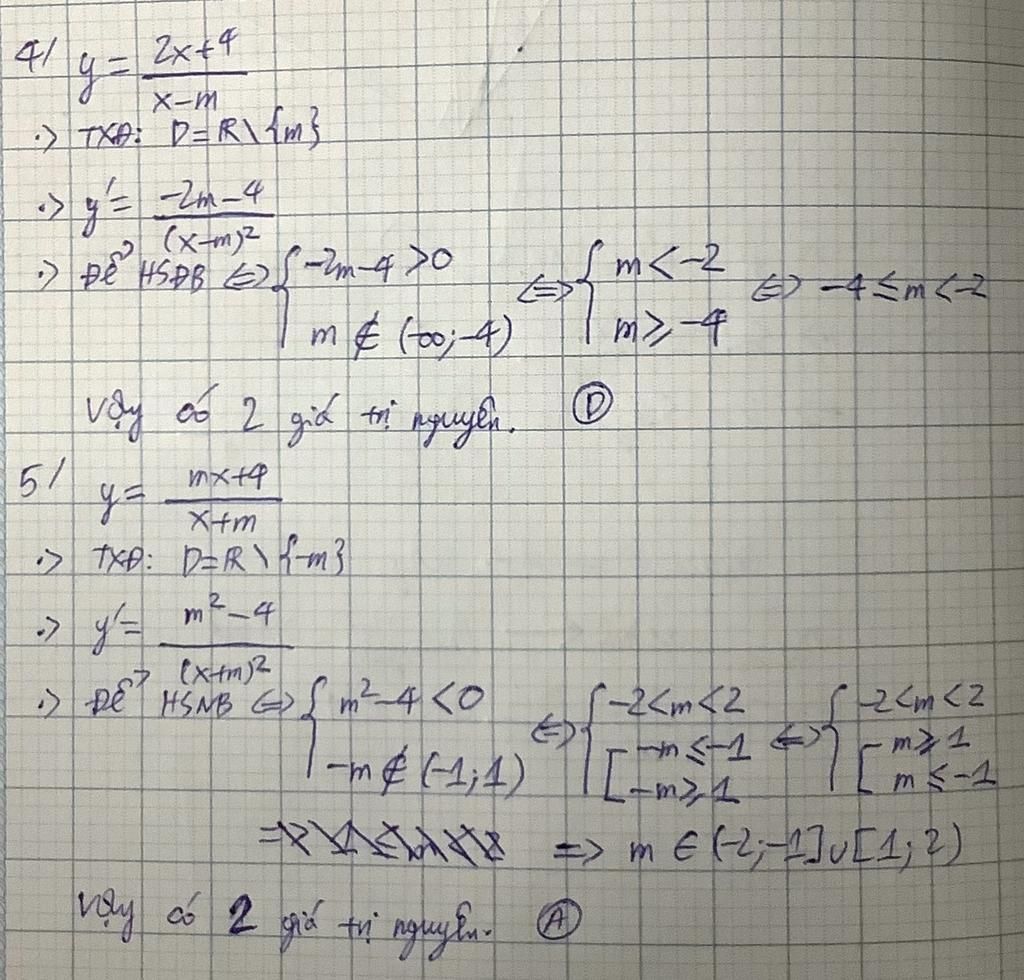 4/ y = (2x+4)/(x-m)
·> TXĐ: D=ℝ\{m}
·> y' = (-2m-4)/(x-m)²
·> Để HSĐB ⇔ { -2m-4 >0 ; m ∉ (-∞;-4) ⇔ { m < -2 ; m ≥ -4 ⇔ -4 ≤ m < -2
Vậy có 2 giá trị nguyên. Ⓓ
5/ y = (mx+4)/(x+m)
·> TXĐ: D=ℝ\{-m}
·> y' = (m²-4)/(x+m)²
·> Để HSNB ⇔ { m²-4 <0 ; -m ∉ (-1;1) ⇔ { -2<m<2 ; [ -m ≤ -1 ; -m ≥ 1 ⇔ { -2<m<2 ; [ m ≥ 1 ; m ≤ -1
=> m ∈ (-2;-1]∪[1;2)
Vậy có 2 giá trị nguyên. Ⓐ